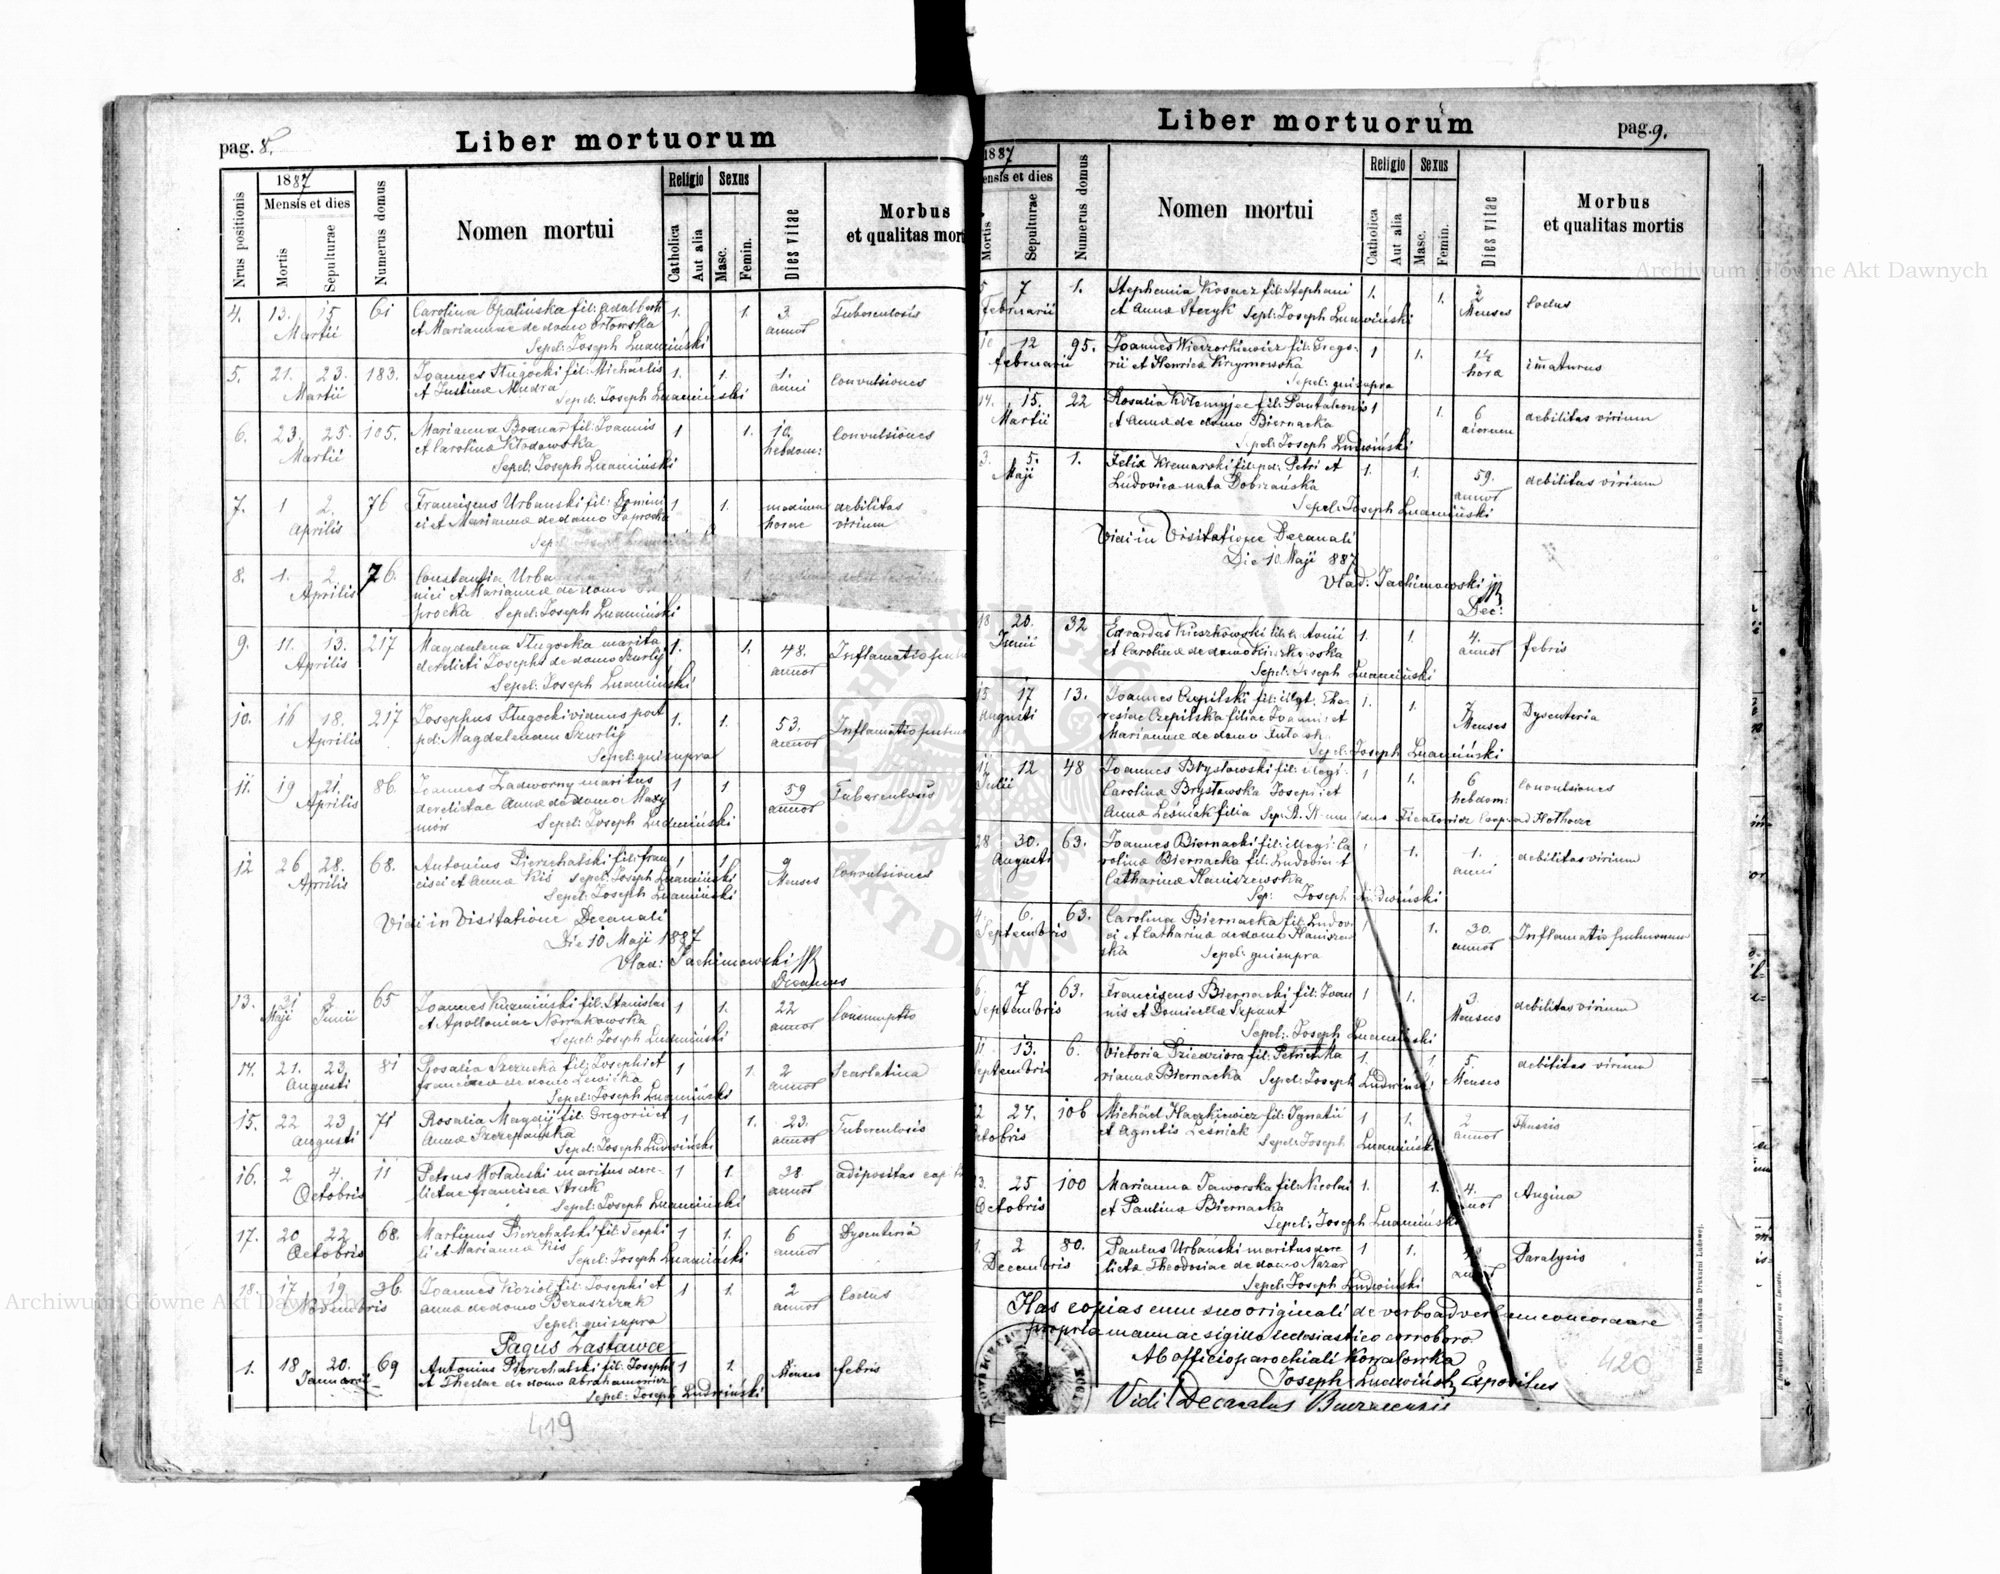 pag. 8.
Liber mortuorum
Nrus positionis
1887
Mensis et dies
Mortis
Sepulturae
Numerus domus
Nomen mortui
Religio
Catholica
Aut alia
Sexus
Masc.
Femin.
Dies vitae
Morbus
et qualitas mort
4. 13. 15 61 Carolina Opalińska fil: Adalberti 1. 1. 3. Tuberculosis
Martii et Mariannae de domo Orłowska annor
Sepel: Joseph Ludwiński
5. 21. 23. 183. Joannes Sługocki fil: Michaelis 1. 1. 1. Convulsiones
Martii et Justina Mudra anni
Sepel: Joseph Ludwiński
6. 23. 25. 105. Marianna Bodnar fil: Joannis 1 1. 10. Convulsiones
Martii et Carolina Kłodowska hebdom:
Sepel: Joseph Ludwiński
7. 1 2. 76 Franciscus Urbanski fil: Domini 1 1. debilitas
Aprilis ci et Marianna de domo Paprocka horae virium
Sepel
8. 1. 2. 76. Constantia
Aprilis nici et Mariannae de domo Pa
procka Sepel: Joseph Ludwiński
9. 11. 13. 217 Magdalena Sługocka marita 1. 1. 48. Inflamatio
Aprilis derelicti Josephi de domo Szurlij annor
Sepel: Joseph Ludwiński
10. 16 18. 217 Josephus Sługocki viduus post 1. 1. 53. Inflamatio
Aprilis pd: Magdalenam Szurlij annor
Sepel: qui supra
11. 19 21. 86. Joannes Zadworny maritus 1 1 59 Tuberculosis
Aprilis derelictae Annae de domo Maxy annor
mów Sepel: Joseph Ludwiński
12 26 28. 68. Antonius Pierzchalski fil: Fran 1 1. 9 Convulsiones
Aprilis cisci et Anna Kis Sepel: Joseph Ludwiński Menses
Sepel: Joseph Ludwiński
Vidi in Visitatione Decanali
Die 10 Maji 1887
Vlad: Jachimowski
Decanus
13. 31 2 65 Joannes Kuzmiński fil: Stanislai 1 1. 22 Consumptio
Maji Junii et Apolloniae Nowakowska annor
Sepel: Joseph Ludwiński
14. 21. 23. 81 Rosalia Szezucka fil: Josephi et 1 1. 2 Scarlatina
Augusti Francisca de domo Lewicka annor
Sepel: Joseph Ludwiński
15. 22 23 71 Rosalia Magdij fil: Gregorii et 1 1. 23. Tuberculosis
Augusti Anna Szczepańska annor
Sepel: Joseph Ludwiński
16. 2 4. 11 Petrus Wolański maritus dere- 1 1. 38 adipositas
Octobris lictae Francisca Struk annor
Sepel: Joseph Ludwiński
17. 20 22 68. Martinus Pierzchalski fil: Teophi 1 1. 6 Dysenteria
Octobris li et Marianna Kis annor
Sepel: Joseph Ludwiński
18. 17 19 36. Joannes Kozioł fil: Josephi et 1 1. 2 Codus
Novembris Anna de domo annor
Sepel: qui supra
Pagus Zastawce
1. 18 20. 69 Antonius Pierzchalski fil: Josephi 1 1. febris
Januarii et Theclae de domo Abrahamowicz Menses
Sepel: Joseph Ludwiński
419
Liber mortuorum
pag. 9.
1887
Mensis et dies
Mortis
Sepulturae
Numerus domus
Nomen mortui
Religio
Catholica
Aut alia
Sexus
Masc.
Femin.
Dies vitae
Morbus
et qualitas mortis
5 7 1. Stephania Kosacz fil: Stephani 1. 1. 2 Codus
Februarii et Anna Steryk Sepl: Joseph Ludwiński Menses
10 12 95. Joannes Wieczorkiewicz fil: Grego- 1 1. imaturus
Februarii rii et Henrica Krymowska hora
Sepel: qui supra
14. 15. 22 Rosalia Kołomyjec fil: Pantaleonis 1 1. 6 debilitas virium
Martii et Anna de domo Biernacka dierum
Sepel: Joseph Ludwiński
3. 5. 1. Felix Kremarski fil: pd: Petri et 1. 1. 59. debilitas virium
Maji Ludovica nata Dobrzańska annor
Sepel: Joseph Ludwiński
Vidi in Visitatione Decanali
Die 10 Maji 887
Vlad: Jachimowski
Dec:
18 20. 32 Edvardus Kieszkowski fil: Antonii 1. 1. 4. febris
Junii et Carolina de domo Kieszkowska annor
Sepel: Joseph Ludwiński
15 17 13. Joannes Czepilski fil: illgt. The- 1. 1. 7 Dysenteria
Augusti resiae Czepilska filiae Joannis et Menses
Mariannae de domo
Sepel: Joseph Ludwiński
11 12 48 Joannes Brysławski fil: illegi: 1. 1. 6 convulsiones
Julii Carolina Brysławska Josephi et hebdom:
Anna Leśniak filia Sep.
28 30. 63. Joannes Biernacki fil: illegi: Ca 1 1. 1. debilitas virium
Augusti rolina Biernacka fil: Ludovici et anni
Catharina Haniszewska
Sep: Joseph Ludwiński
4. 6. 63. Carolina Biernacka fil: Ludov- 1 1. 30. Inflamatio pulmonum
Septembris ci et Catharina de domo Haniszew annor
ska Sepel: qui supra
6. 7 63. Franciscus Biernacki fil: Joan 1 1. 3. debilitas virium
Septembris nis et Domicella Szpunt Menses
Sepel: Joseph Ludwiński
11 13. 6. Victoria Dziedziora fil: Petri et Ma 1. 1 5. debilitas virium
Septembris rianna Biernacka Sepel: Joseph Ludwiński Menses
22 24. 106 Michael Haczkiewicz fil: Ignatii 1 1. 2 Thussis
Octobris et Agnetis Leśniak Sepel: Joseph Ludwiński annor
23. 25 100 Marianna Jaworska fil: Nicolai 1. 1. 4. Angina
Octobris et Paulina Biernacka annor
Sepel: Joseph Ludwiński
1. 2 80. Paulus Urbański maritus dere 1 1. Paralysis
Decembris licta Theodosiae de domo Nazar
Sepel: Joseph Ludwiński
Has copias cum suo originali de verbo ad verbum concordare
propria manu ac sigillo ecclesiastico corroboro
Ab officio parochiali Kowalowka
Joseph Ludwiński Expositus
Vidi! Decanatus Buczacensis
420
Drukiem i nakładem Drukarni Ludowej.
ARCHIWUM GŁÓWNE AKT DAWNYCH
Archiwum Główne Akt Dawnych
Archiwum Główne Akt Dawnych